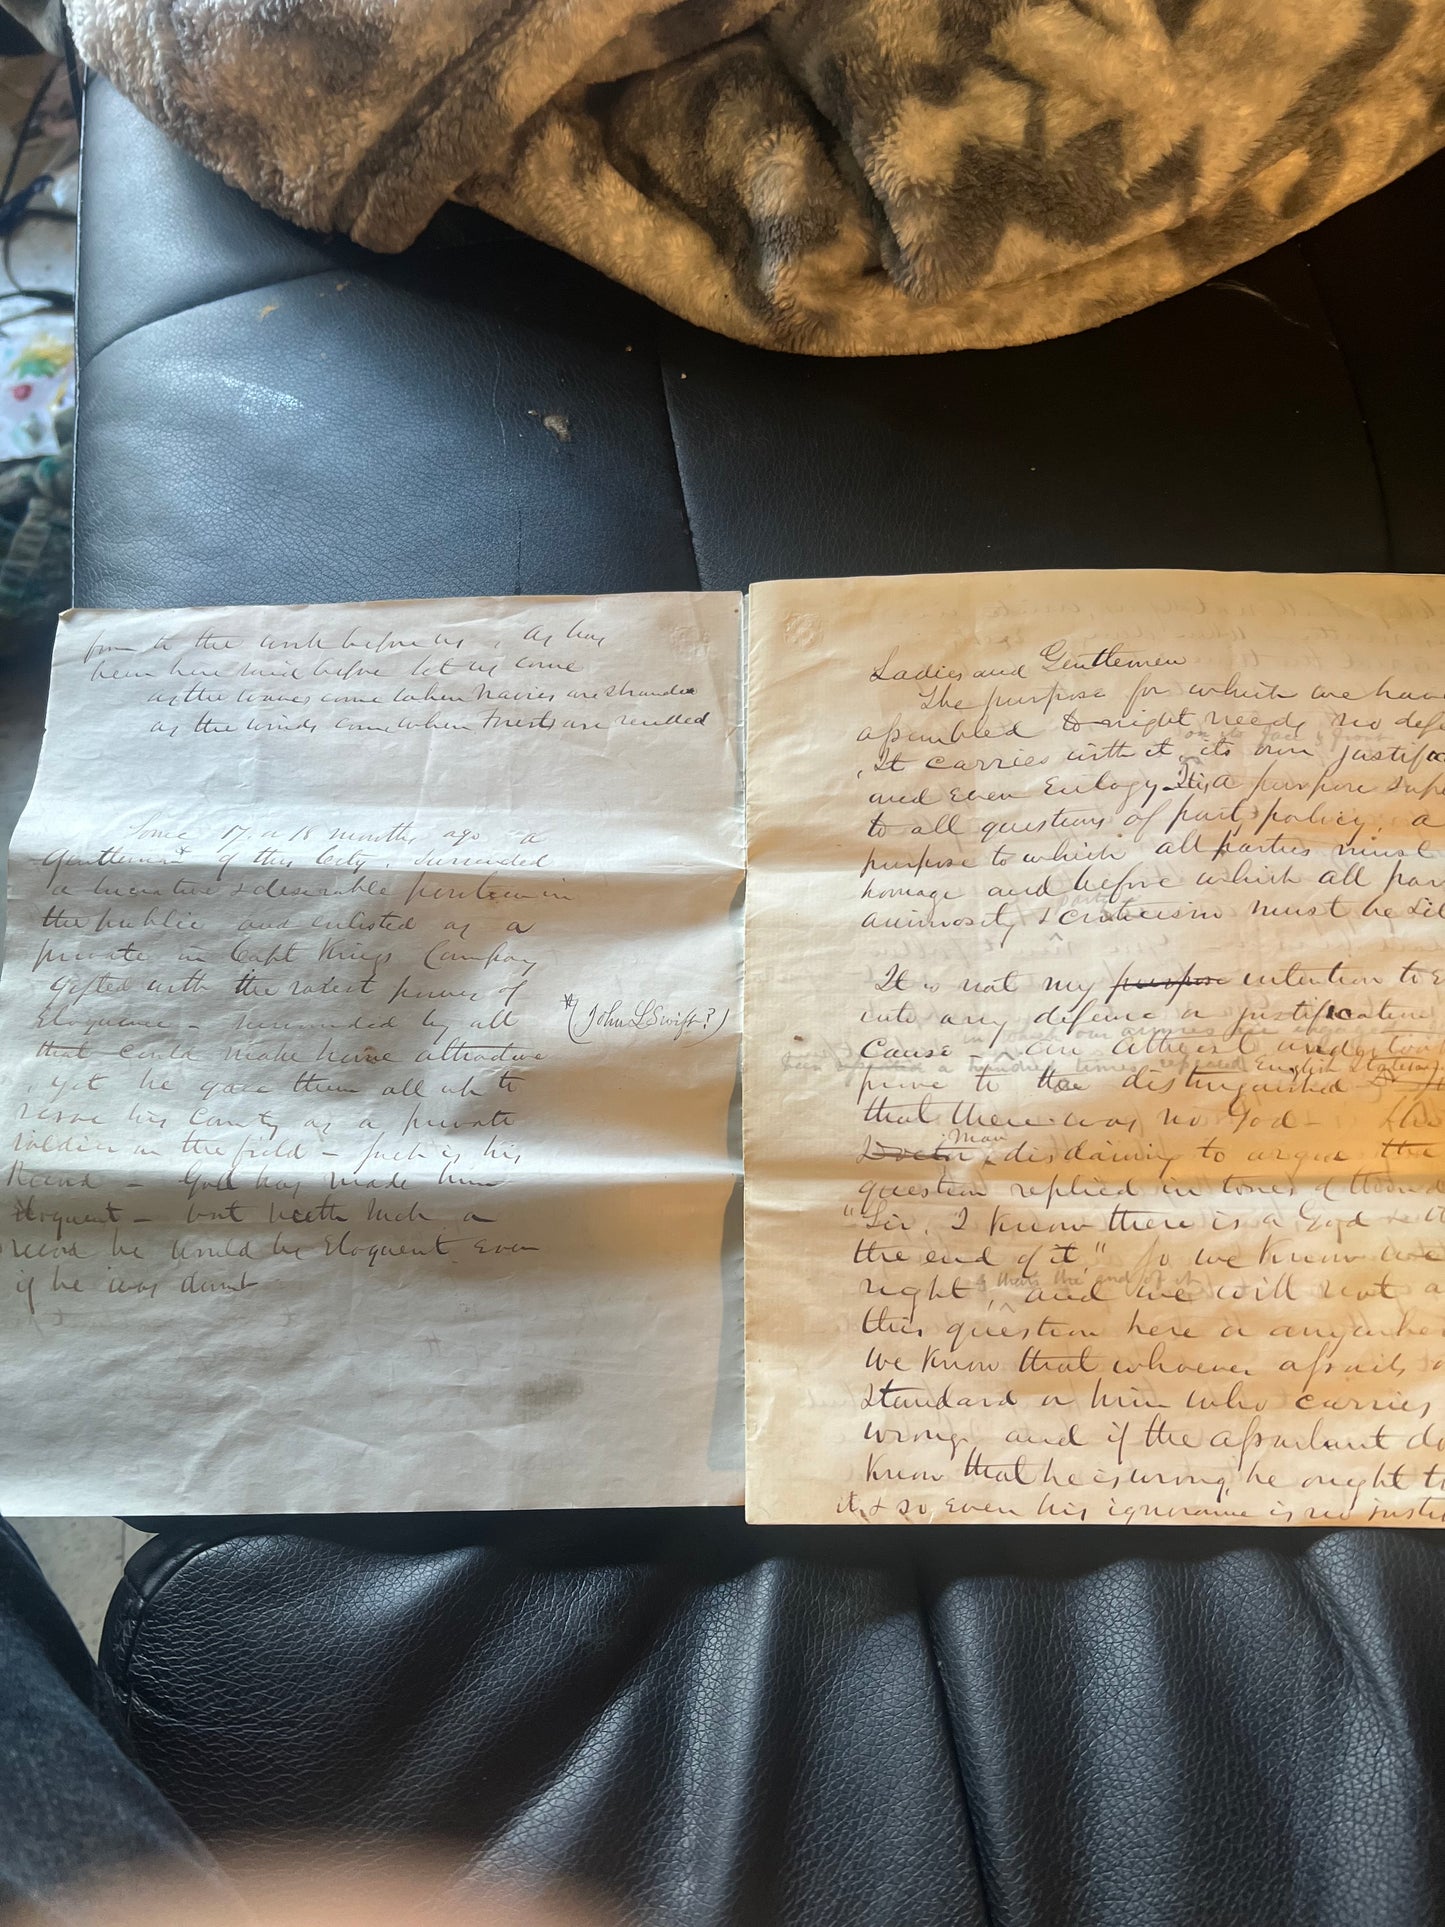 from to the work before us, As has
been here said before let us come
as the waves come when navies are stranded
as the winds come when forests are rended
Some 17 or 18 months ago a
Gentleman* of this City, surrended
a lucrative & desirable position in
the public and enlisted as a
private in Capt Kings Company
Gifted with the rarest power of
Eloquence - surrounded by all
that could make home attractive
, yet he gave them all up to
serve his County as a private
soldier in the field - such is his
Record - God has made him
Eloquent - but with such a
record he would be Eloquent even
if he was dumb
*(John L Swift?)
Ladies and Gentlemen
The purpose for which we have
assembled to night needs no defe
on its face & front
, It carries with it, its own justifica
and even Eulogy. It is a purpose supe
to all questions of party policy, a
purpose to which all parties must
homage and before which all par
party
animosity & criticism must be sil
It is not my purpose intention to e
into any defence or justification
in which our armies are engaged
cause - an atheist undertook
been repeated a hundred times replied English Statesman
prove to the distinguished Dr
that there was no God - The
man
Doctor, disdaining to argue the
question replied in tones of thund
"Sir, I know there is a God & t
the end of it," So we know we
& thats the end of it
right, and we will not a
this question here or anywhe
We know that whoever assails o
Standard or him who carries
wrong, and if the assailant do
know that he is wrong, he ought t
it, & so even his ignorance is no justi